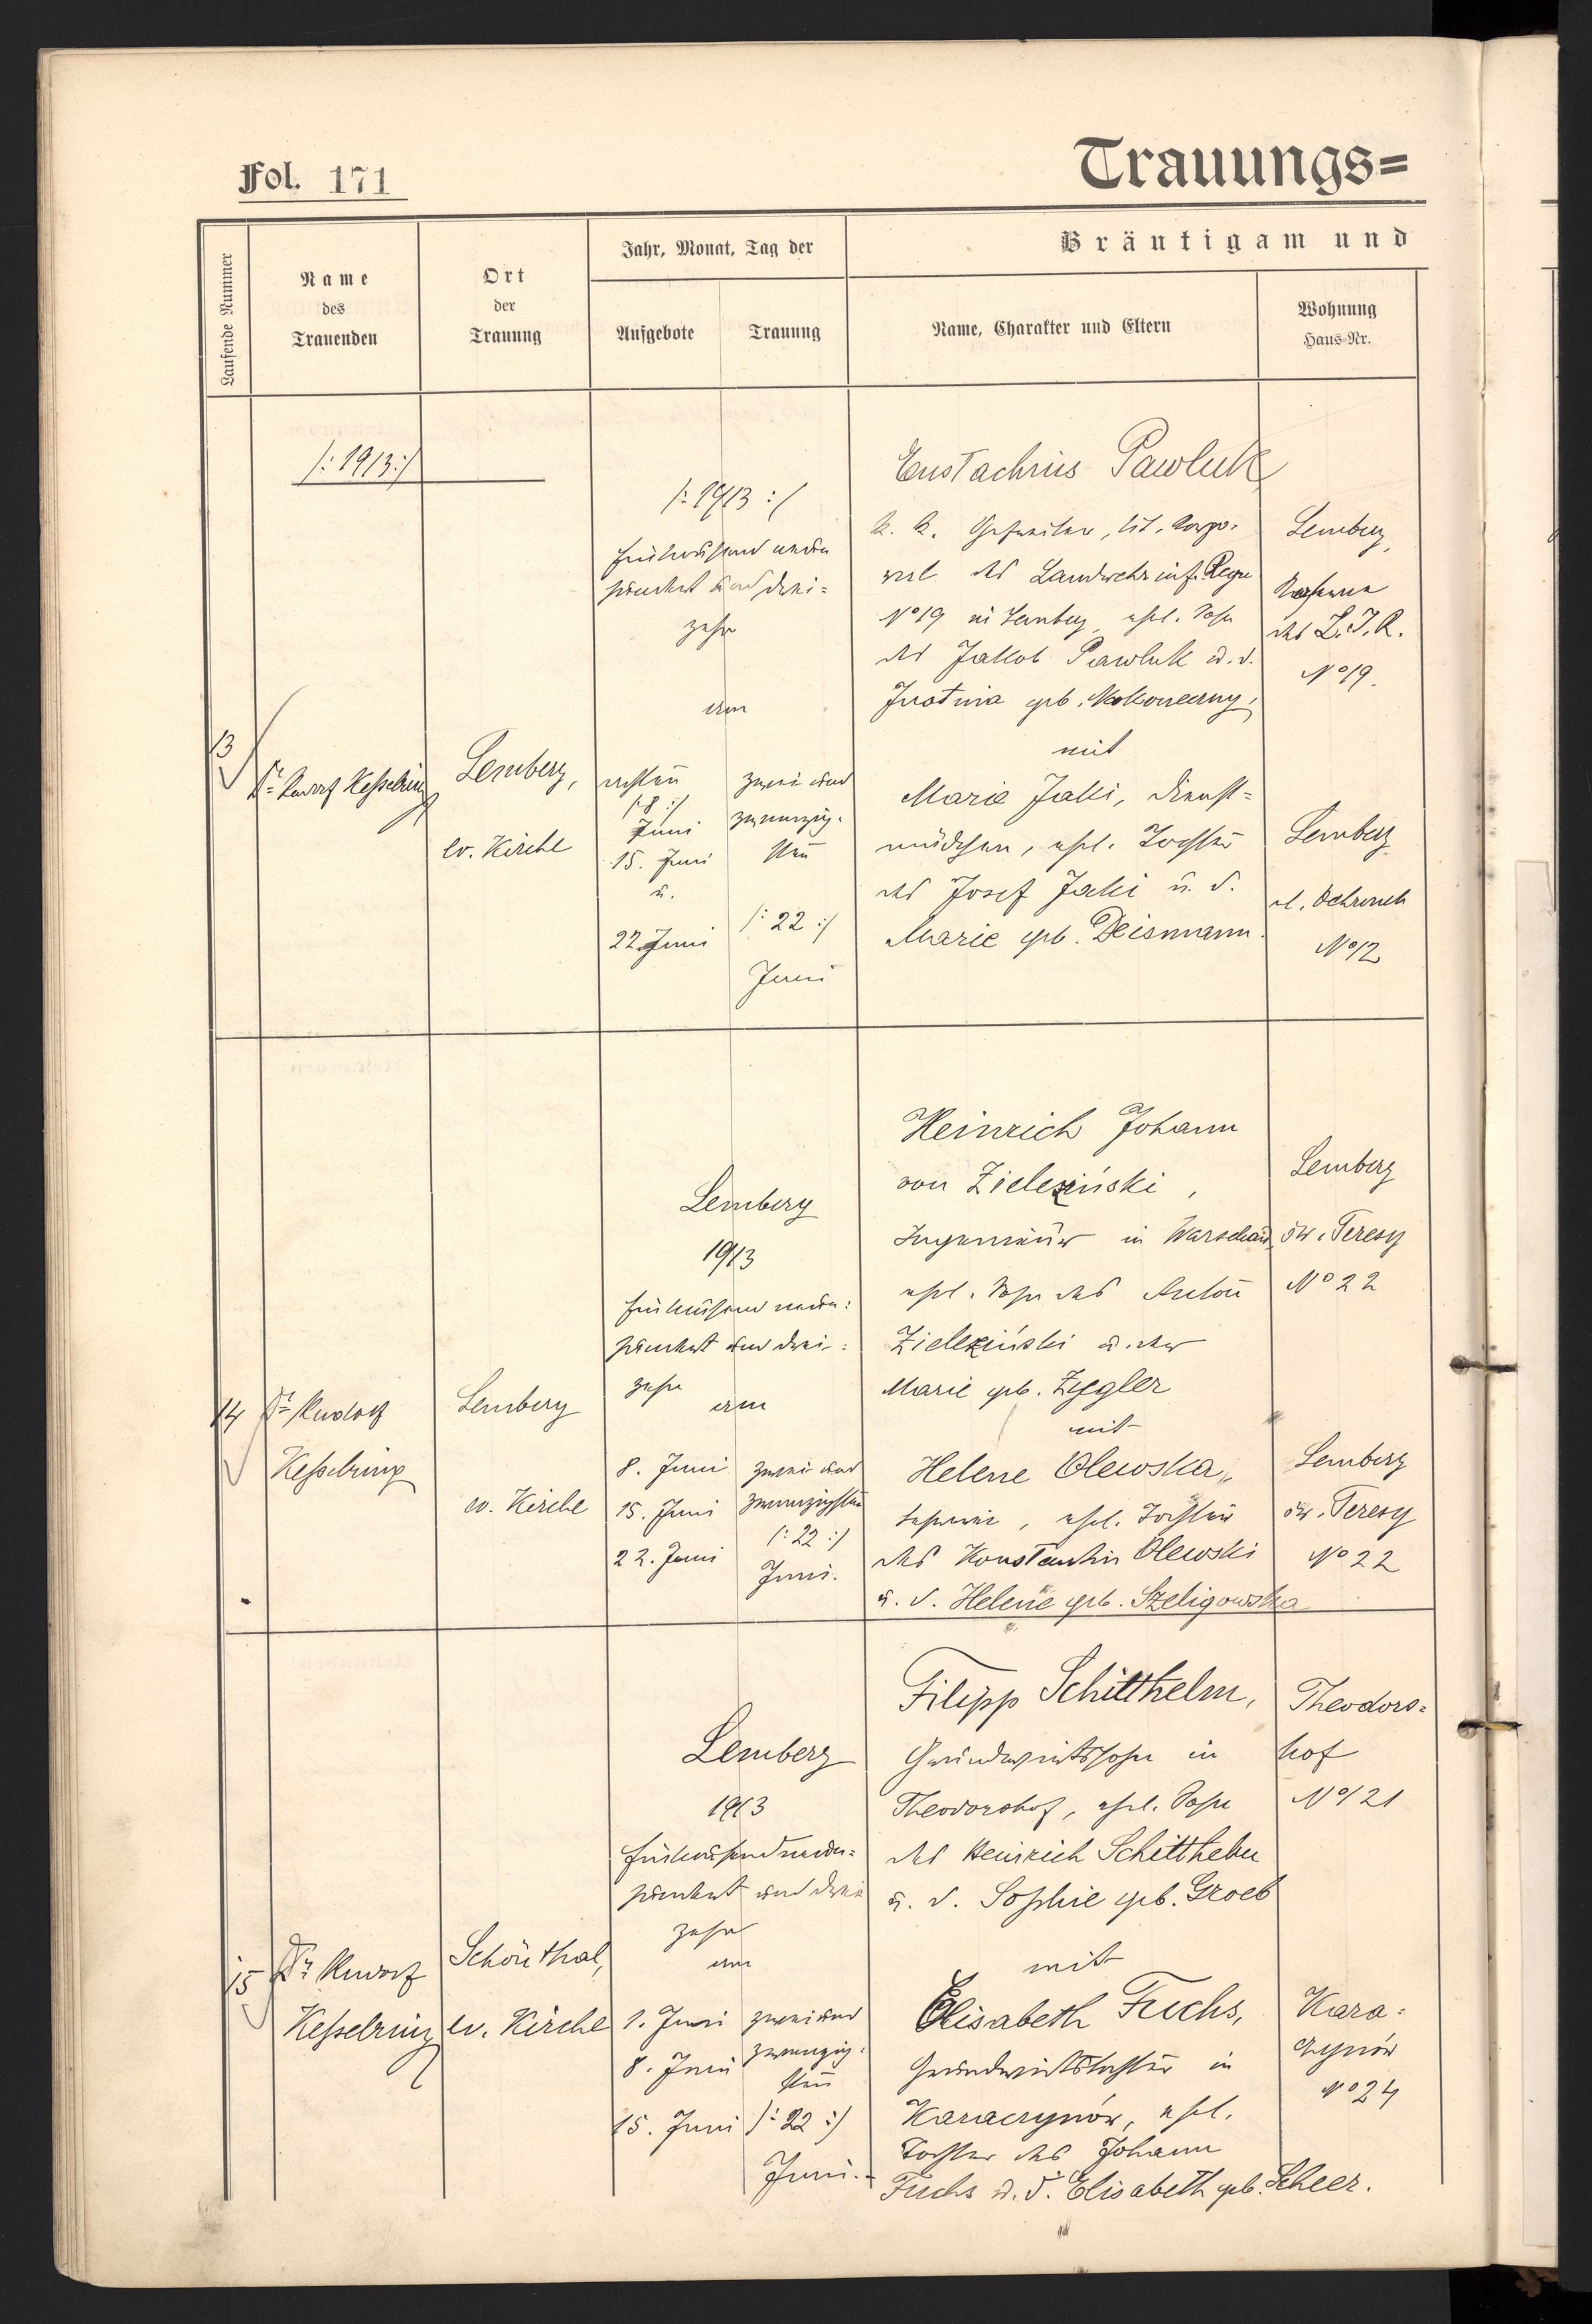 Fol. 171
Trauungs=
Laufende Nummer
Name
des
Trauenden
Ort
der
Trauung
Jahr, Monat, Tag der
Aufgebote
Trauung
Bräutigam und
Name, Charakter und Eltern
Wohnung
Haus-Nr.
/: 1913 :/
13
Dr. Rudolf Kesselring
Lemberg,
ev. Kirche
/: 1913 :/
Eintausend neun
hundert und drei=
zehn
am
achten
/: 8 :/
Juni
15. Juni
u.
22. Juni
zwei und
zwanzig=
sten
/: 22 :/
Juni
Eustachius Pawluk
k. k. Gefreiter, tit. Korpo=
ral des Landwehrinf. Regm
No 19 in Lemberg, ehel. Sohn
des Jakob Pawluk u. d.
Justina geb.
mit
Marie Jaki, Dienst=
mädchen, ehel. Tochter
des Josef Jaki u. d.
Marie geb. Deismann.
Lemberg,
Kaserne
des L. I. R.
No 19.
Lemberg
ul. Ochronek
No 12
14
Dr. Rudolf
Kesselring
Lemberg
ev. Kirche
Lemberg
1913
Eintausend neun=
hundert und drei=
zehn
am
8. Juni
15. Juni
22. Juni
zwei und
zwanzigsten
/: 22 :/
Juni.
Heinrich Johann
von Zieleziński,
Ingenieur in Warschau,
ehel. Sohn des Anton
Zieleziński u. der
Marie geb. Zygler
mit
Helene Olewska,
ehel. Tochter
des Konstantin Olewski
u. d. Helene geb. Szeligowska
Lemberg
św. Teresy
No 22
Lemberg
św. Teresy
No 22
15
Dr. Rudolf
Kesselring
Schönthal,
ev. Kirche
Lemberg
1913
Eintausend neun=
hundert und drei
zehn
am
1. Juni
8. Juni
15. Juni
zwei und
zwanzig=
sten
/: 22 :/
Juni.
Filipp Schitthelm,
Grundwirtssohn in
Theodorshof, ehel. Sohn
des Heinrich Schitthelm
u. d. Sophie geb. Groeb
mit
Elisabeth Fuchs,
Grundwirtstochter in
Karaczynów, ehel.
Tochter des Johann
Fuchs u. d. Elisabeth geb. Scheer.
Theodors=
hof
No 121
Kara=
czynów
No 24